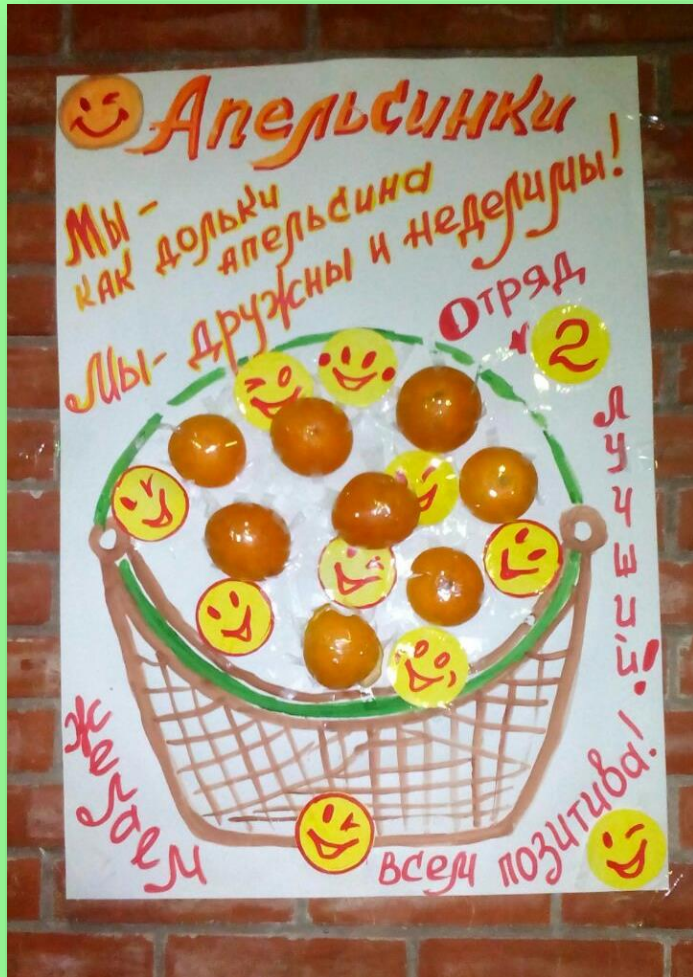 Апельсинки
Мы -
как дольки
апельсина
Мы - дружны и неделимы!
Отряд
№ 2
лучший!
Желаем
всем позитива!